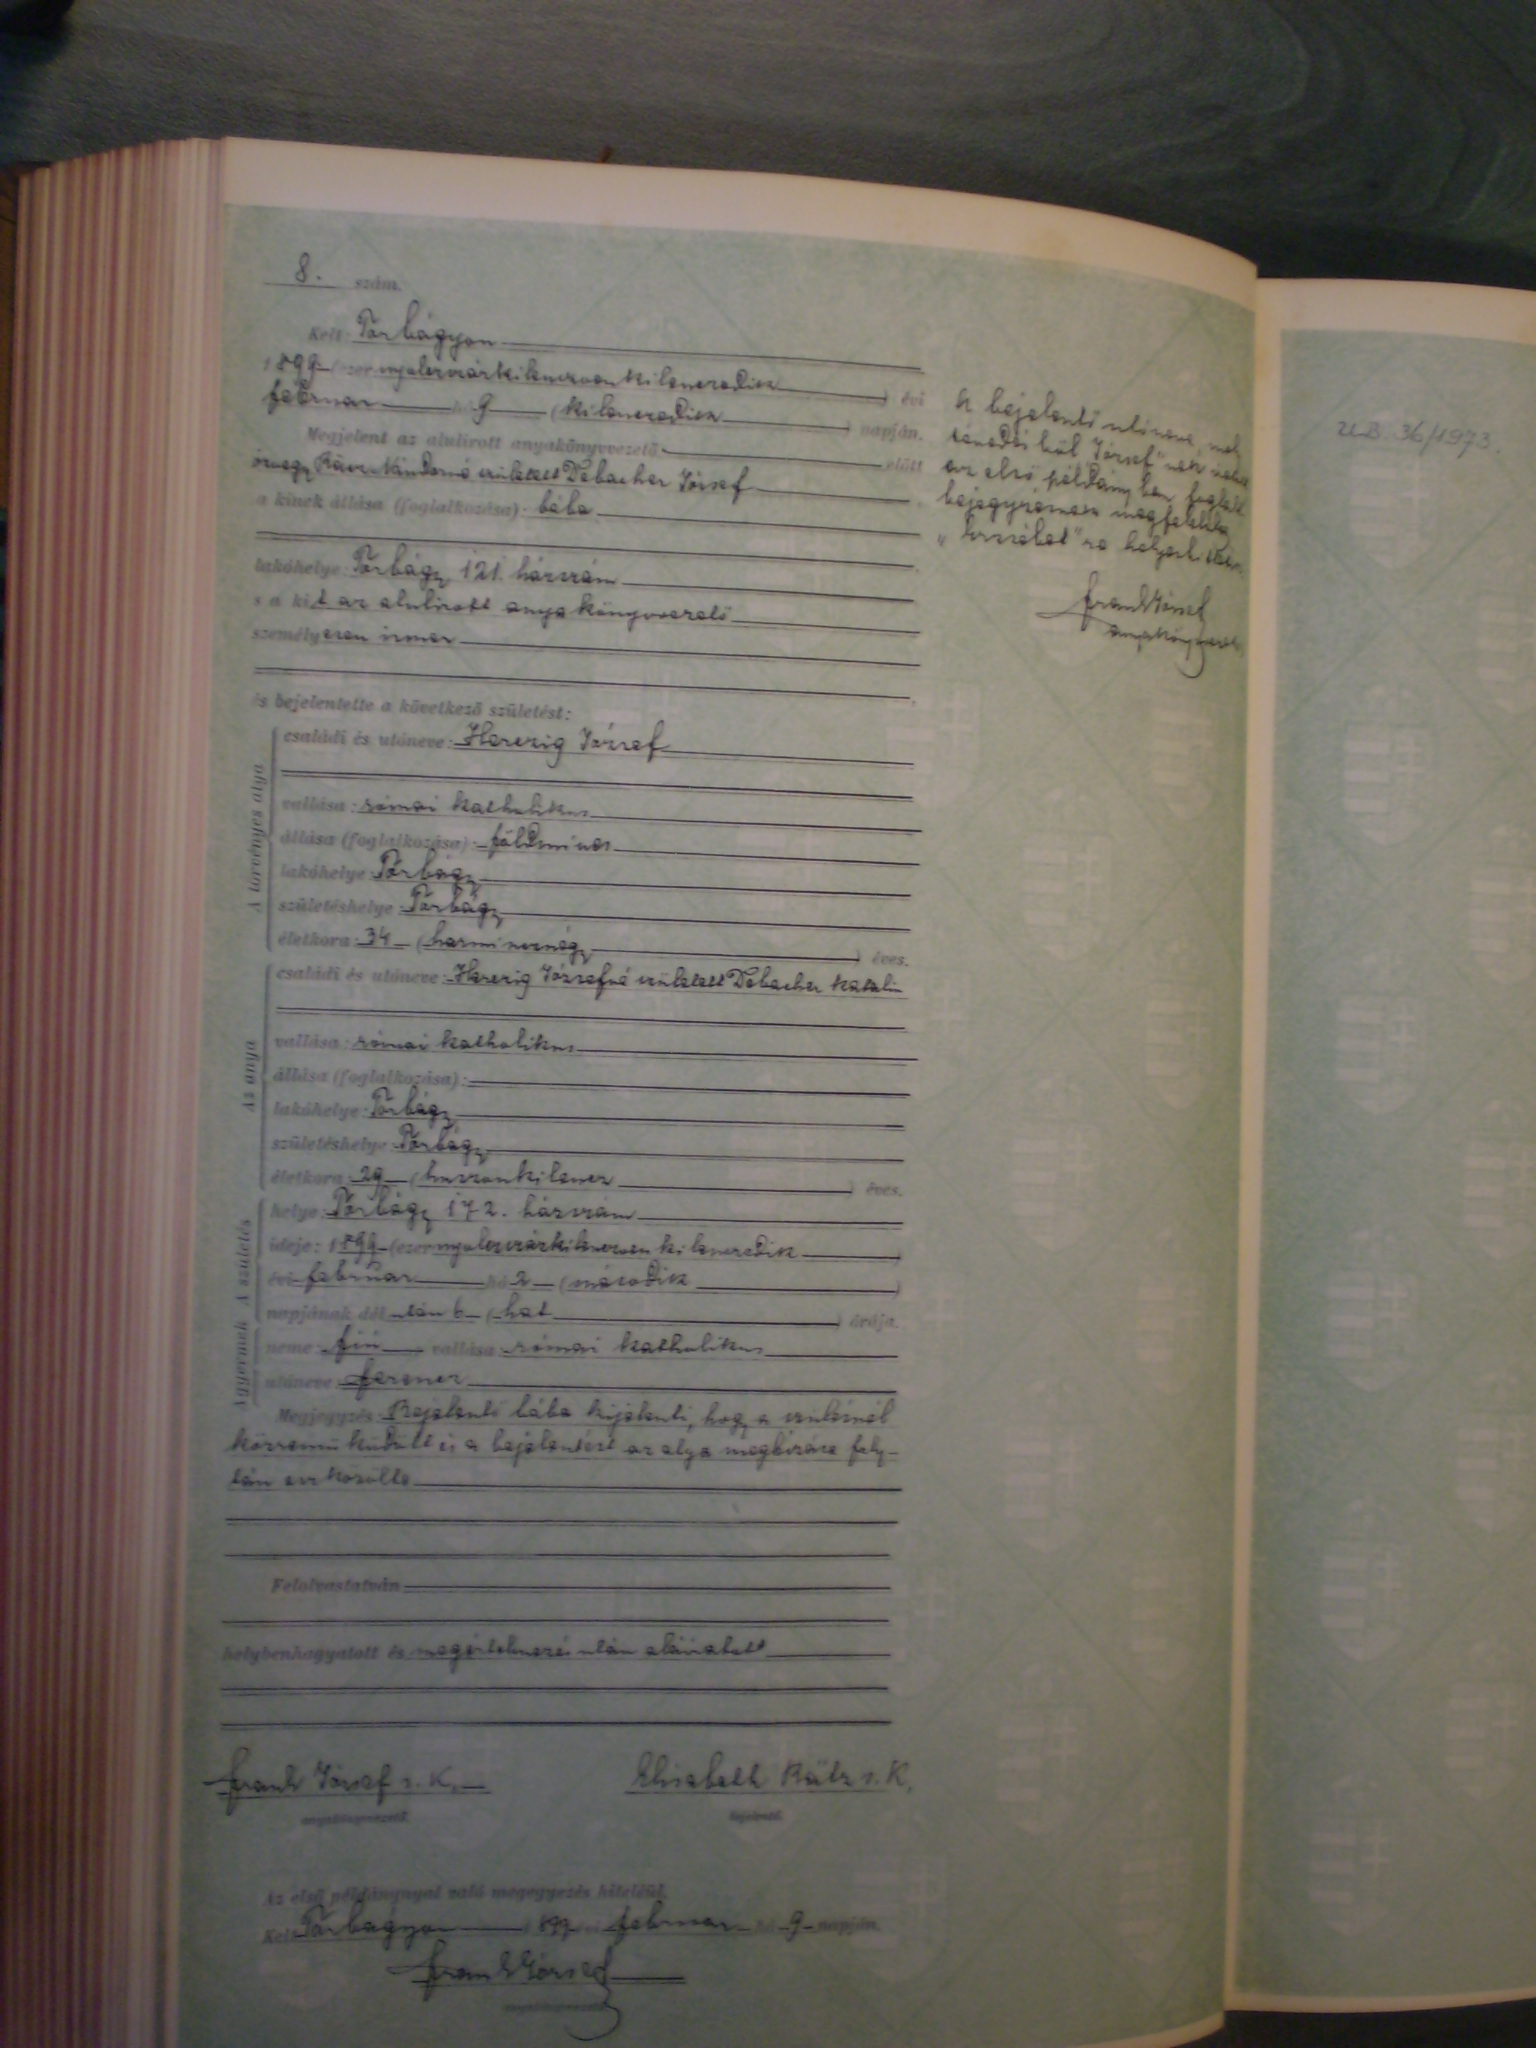 8. szám.
Kelt Törbágyon
1899 (ezer nyolczszázkilenczvenkilenczedik) évi
februar hó 9 (kilenczedik) napján.
Megjelent az alulirott anyakönyvvezető előtt
özvegy Rätz Nándorné született Debacher József
a kinek állása (foglalkozása): bába
lakóhelye: Törbágy 121. házszám
s a kit az alulirott anyakönyvvezető
személyesen ismer
és bejelentette a következő születést:
A törvényes atya
családi és utóneve: Herczig József
vallása: római katholikus
állása (foglalkozása): földmives
lakóhelye Törbágy
születéshelye Törbágy
életkora: 34 (harmincznégy) éves.
Az anya
családi és utóneve: Herczig Józsefné született Debacher Katalin
vallása: római katholikus
állása (foglalkozása):
lakóhelye: Törbágy
születéshelye Törbágy
életkora 29 (huszonkilencz) éves.
A születés
helye: Törbágy 172. házszám
ideje: 1899 (ezer nyolczszázkilenczvenkilenczedik)
évi február hó 2 (második)
napjának dél után 6 (hat) órája.
A gyermek
neme: fiú vallása: római katholikus
utóneve: Ferencz
Megjegyzés: Bejelentő bába kijelenti, hogy a szülésnél
közremüködött és a bejelentést az atya megbizása foly-
tán eszközölte
Felolvastatván
helybenhagyatott és megértelmezés után aláiratott
Frank József s. k.
anyakönyvvezető.
Elisabeth Rätz s. k.
bejelentő.
Az első példánynyal való megegyezés hiteléül.
Kelt Törbágyon 1899 évi februar hó 9 napján.
Frank József
anyakönyvvezető
A bejelentő utóneve, mely
tévedés ból "József"nek iratott
az első példány ban foglalt
bejegyzésnek megfelelőleg
"Erzsébet" re helyesbittetik.
Frank József
anyakönyvvezető
U.B. 36/1973.